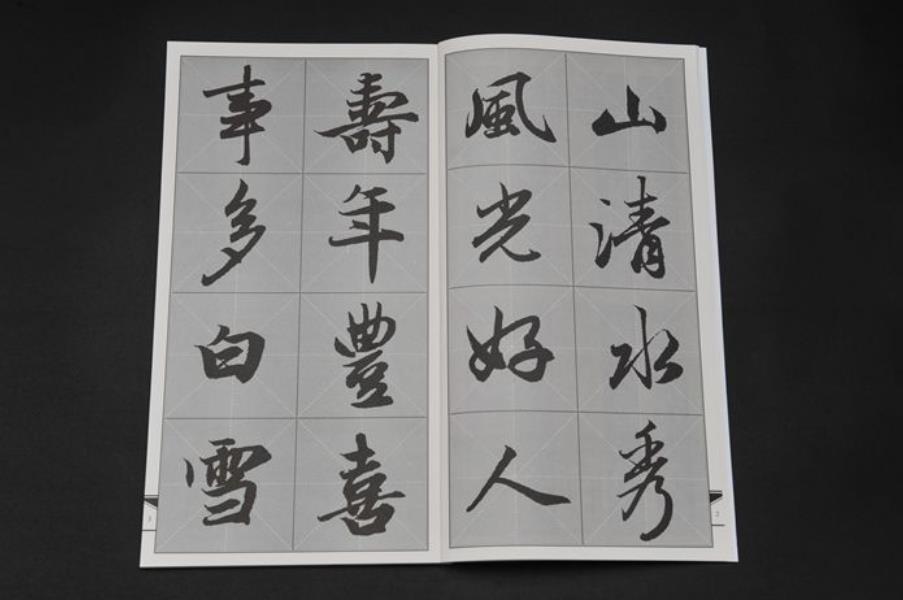 山清水秀
風光好人
壽年豐喜
事多白雪
2
3